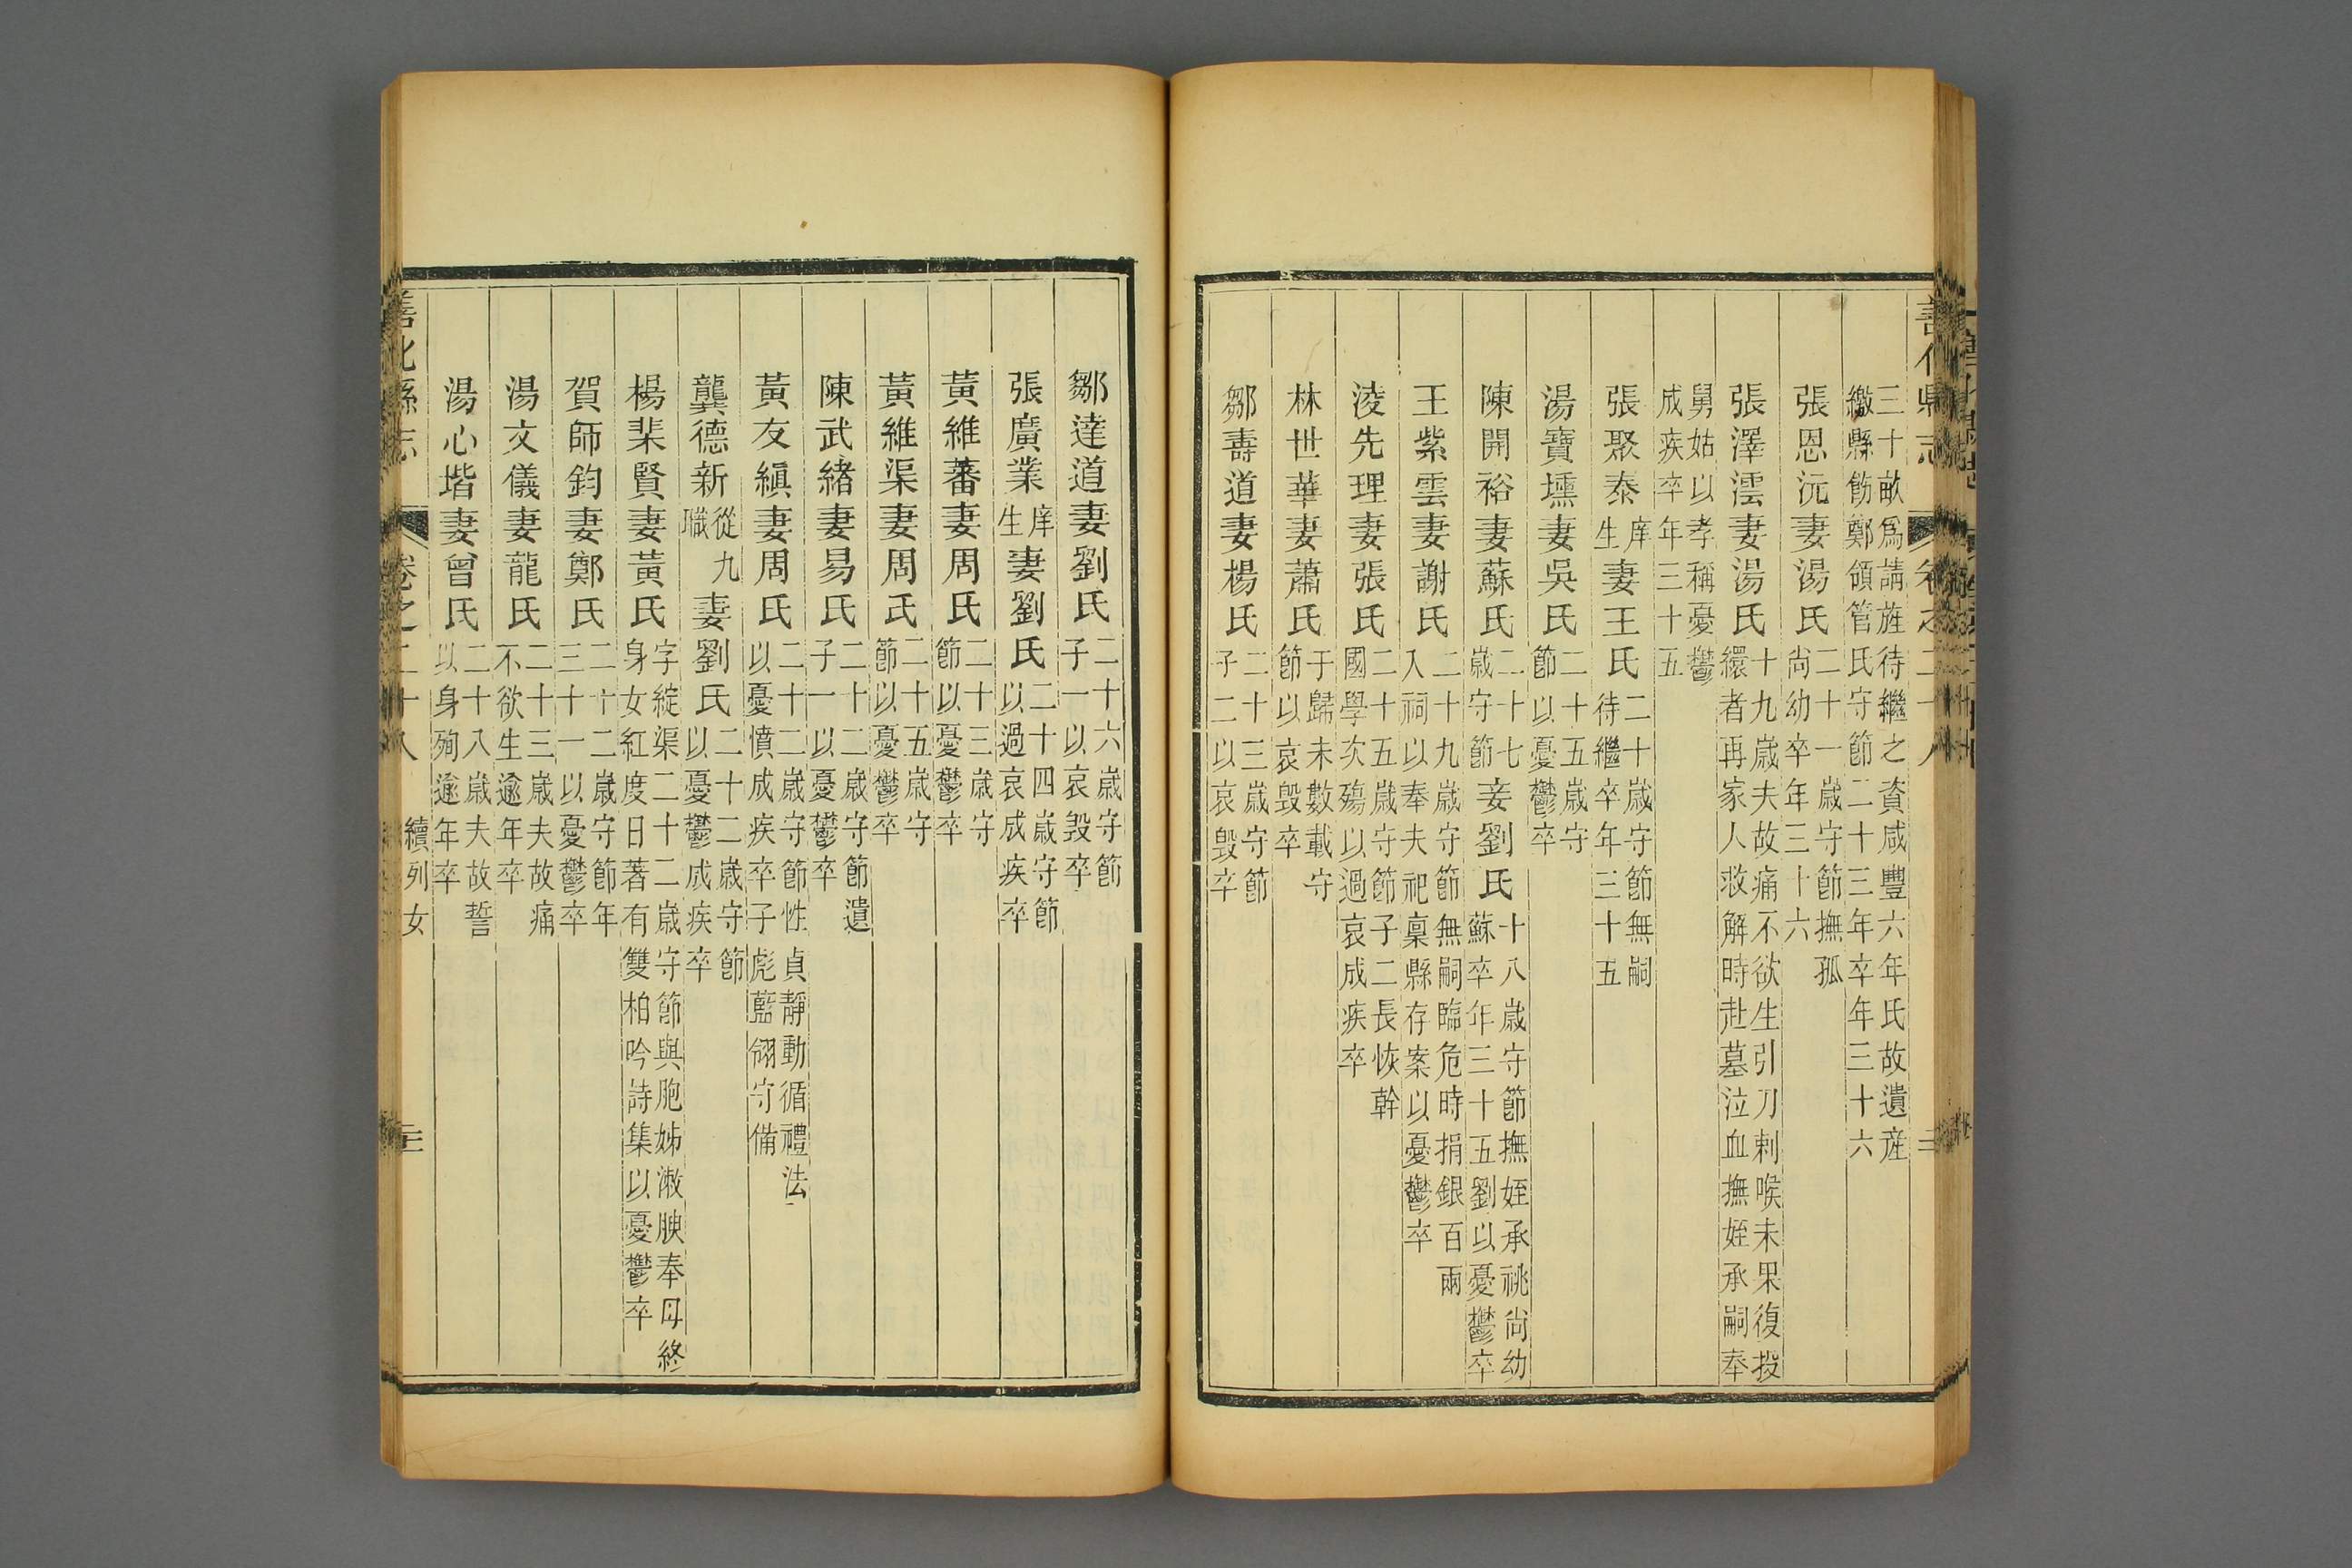 善化縣志 卷之二十八
三十畝爲請旌待繼之資咸豐六年氏故遺産
繳縣飭鄭領管氏守節二十三年卒年三十六
張恩沅妻湯氏二十一歲守節撫孤
尚幼卒年三十六
張澤澐妻湯氏十九歲夫故痛不欲生引刀刺喉未果復投
繯者再家人救解時赴墓泣血撫姪承嗣奉
舅姑以孝稱憂鬱
成疾卒年三十五
張聚泰庠生妻王氏二十歲守節無嗣
待繼卒年三十五
湯寶壎妻吳氏二十五歲守
節以憂鬱卒
陳開裕妻蘇氏二十七歲守節妾劉氏十八歲守節撫姪承祧尚幼
蘇卒年三十五劉以憂鬱卒
王紫雲妻謝氏二十九歲守節無嗣臨危時捐銀百兩
入祠以奉夫祀稟縣存案以憂鬱卒
淩先理妻張氏二十五歲守節子二長恢幹
國學次殤以過哀成疾卒
林世華妻蕭氏于歸未數載守
節以哀毀卒
鄒壽道妻楊氏二十三歲守節
子二以哀毀卒
鄒達道妻劉氏二十六歲守節
子一以哀毀卒
張廣業庠生妻劉氏二十四歲守節
以過哀成疾卒
黃維蕃妻周氏二十三歲守
節以憂鬱卒
黃維渠妻周氏二十五歲守
節以憂鬱卒
陳武緒妻易氏二十二歲守節遺
子一以憂鬱卒
黃友縝妻周氏二十二歲守節性貞靜動循禮法
以憂憤成疾卒子彪藍翎守備
龔德新從九職妻劉氏二十二歲守節
以憂鬱成疾卒
楊棐賢妻黃氏字綻渠二十二歲守節與胞姊漱腴奉母終
身女紅度日著有雙柏吟詩集以憂鬱卒
賀師鈞妻鄭氏二十二歲守節年
三十一以憂鬱卒
湯文儀妻龍氏二十三歲夫故痛
不欲生逾年卒
湯心堦妻曾氏二十八歲夫故誓
以身殉逾年卒
善化縣志 卷之二十八 續列女